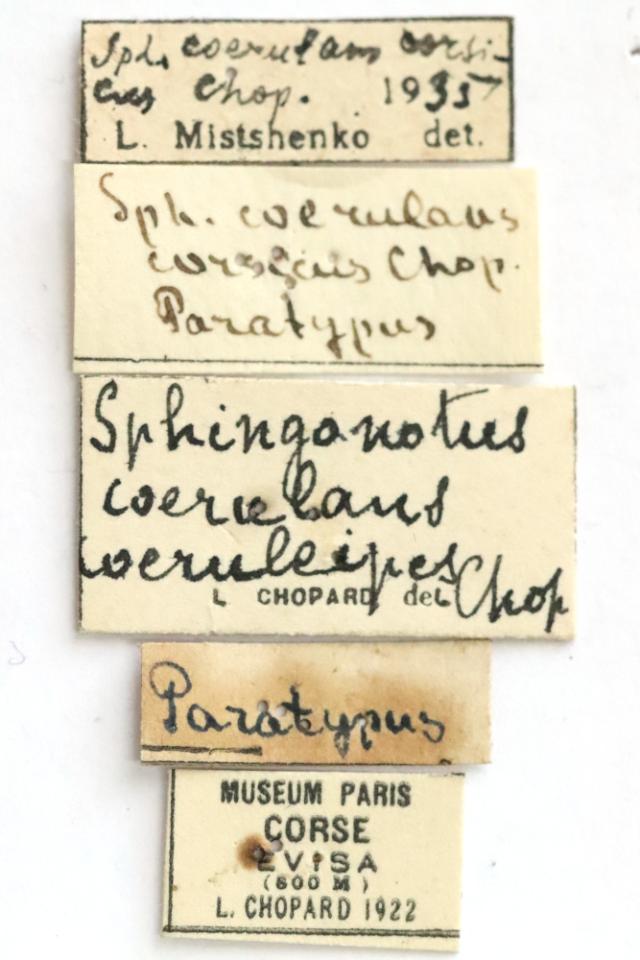 Sph. coerulans corsi-
cus Chop. 1935
L. Mistshenko det.
Sph. coerulans
corsicus Chop.
Paratypus
Sphingonotus
coerulans
coeruleipes Chop
L CHOPARD det.
Paratypus
MUSEUM PARIS
CORSE
EVISA
(800 M)
L. CHOPARD 1922